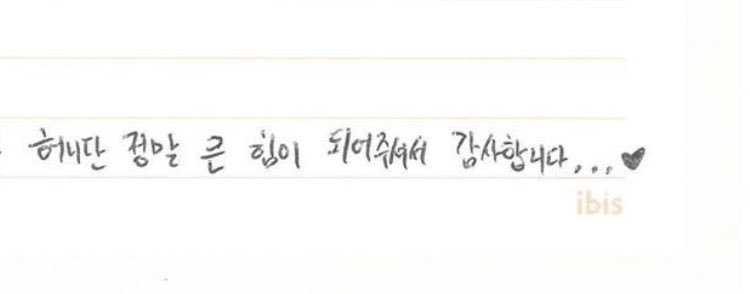 허니단 정말 큰 힘이 되어주셔서 감사합니다...♥
ibis